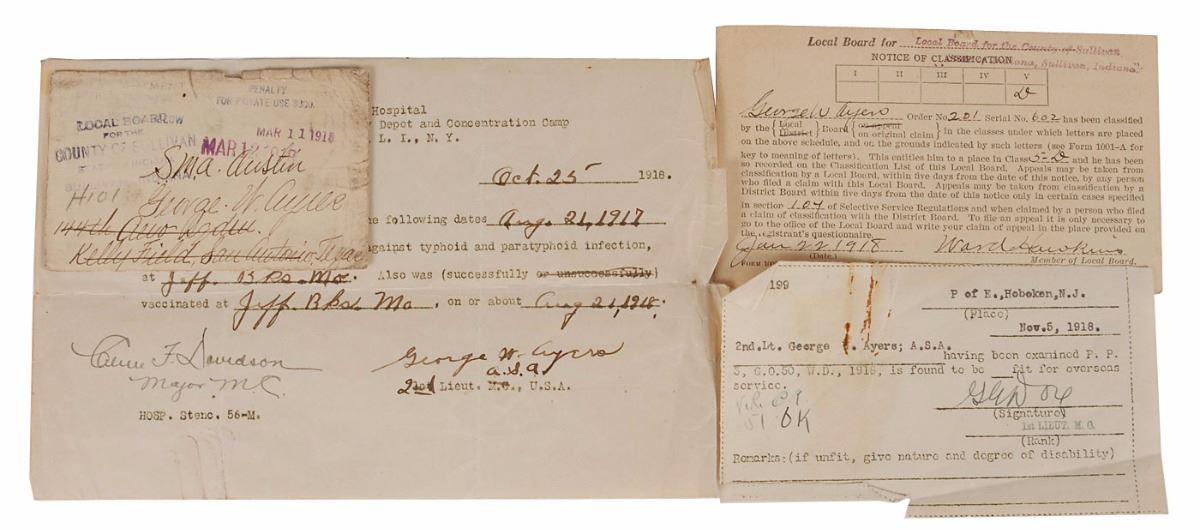 PENALTY
FOR PRIVATE USE $300.
LOCAL BOARD
FOR THE
COUNTY OF SULLIVAN
MAR 11 1918
MAR 12
Sma. Austin
George W. Ayres
144th Aero Sqdn.
Kelly Field, San Antonio, Texas
Hospital
Depot and Concentration Camp
L. I., N. Y.
Oct. 25 1918.
the following dates Aug. 21, 1917
against typhoid and paratyphoid infection,
at Jeff. Bks. Mo. Also was (successfully or unsuccessfully)
vaccinated at Jeff. Bks. Mo, on or about Aug 21, 1918.
F. Davidson
Major M.C.
HOSP. Stenc. 56-M.
George W. Ayers
A.S.A
2nd Lieut. M.C., U.S.A.
Local Board for Local Board for the County of Sullivan
Sullivan, Indiana
NOTICE OF CLASSIFICATION
I II III IV V
D
George W Ayers Order No. 201 Serial No. 602 has been classified
by the { Local District } Board { on appeal on original claim } in the classes under which letters are placed
on the above schedule, and on the grounds indicated by such letters (see Form 1001-A for
key to meaning of letters). This entitles him to a place in Class 5-D and he has been
so recorded on the Classification List of this Local Board. Appeals may be taken from
classification by a Local Board, within five days from the date of this notice, by any person
who filed a claim with this Local Board. Appeals may be taken from classification by a
District Board within five days from the date of this notice only in certain cases specified
in section 104 of Selective Service Regulations and when claimed by a person who filed a
claim of classification with the District Board. To file an appeal it is only necessary to
go to the office of the Local Board and write your claim of appeal in the place provided on
the registrant's questionnaire.
Jan 22 1918 Ward Hawkins
(Date.) Member of Local Board.
FORM
199
P of E., Hoboken, N.J.
(Place)
Nov. 5, 1918.
2nd. Lt. George W. Ayers; A.S.A.
having been examined P. P.
3, G.O.50, W.D., 1918, is found to be fit for overseas
service.
OK
(Signature)
1st LIEUT. M. C.
(Rank)
Remarks: (if unfit, give nature and degree of disability)